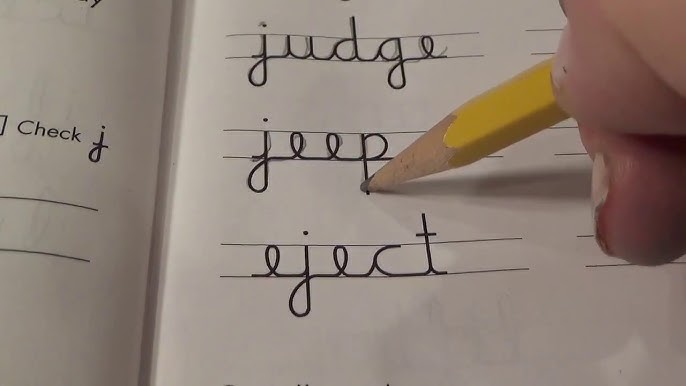 judge
] Check j
jeep
eject